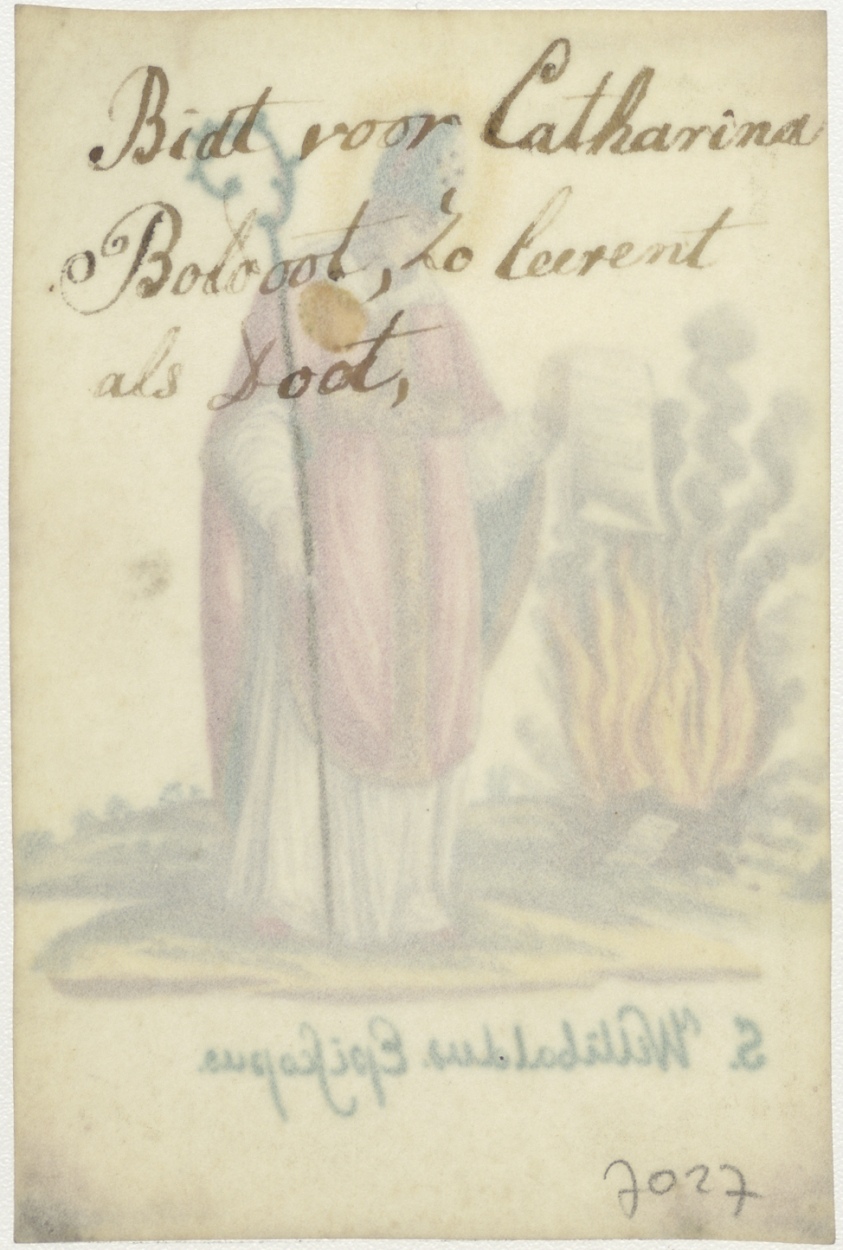 Bidt voor Catharina
Boldoot, zo leevent
als Dodt,
S. Willibaldus Episcopus.
7027